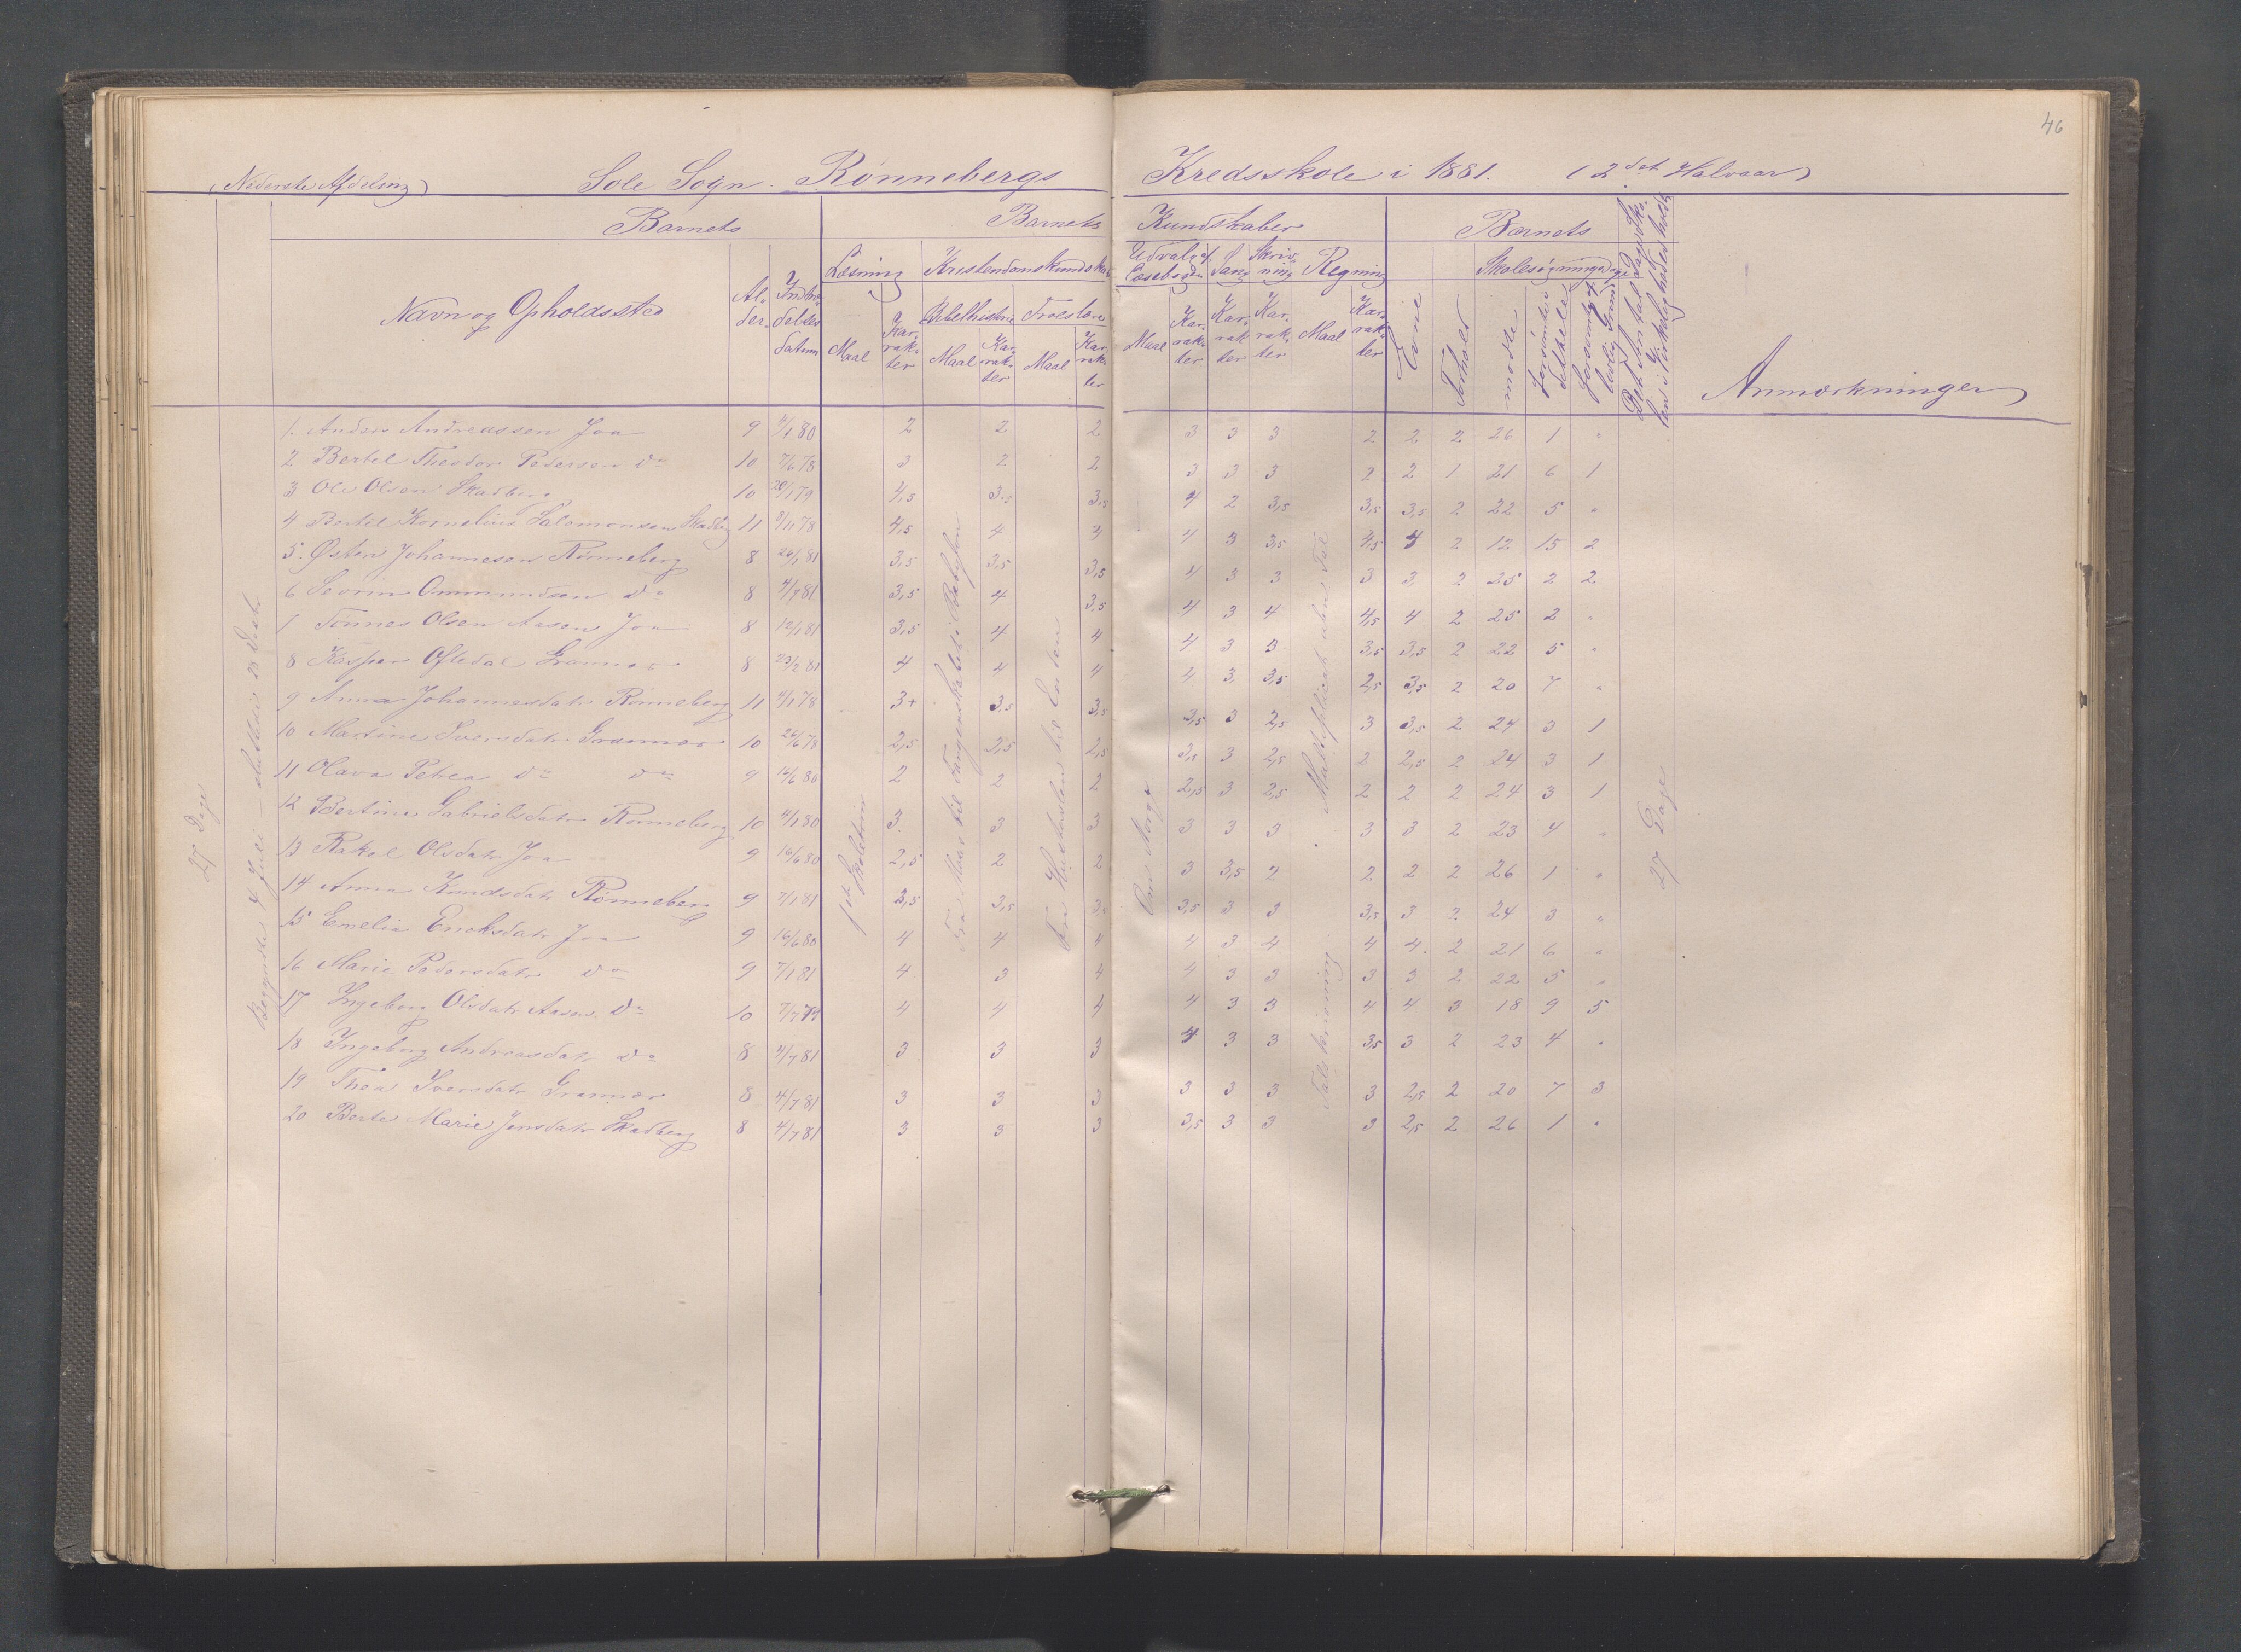 46
(Nederste Afdeling) Sole Sogn. Rönnebergs Kredsskole i 1881. (2det Halvaar)
Barnets Barnets Kundskaber Barnets
Navn og Opholdssted
Al-der. Indtræ-delses datum
Læsning Kristendomskundskab
Bibelhistorie Troeslære
Maal Karakter Maal Karakter Maal Karakter
Udvalg af Læsebogen Sang Skrivning Regning
Maal Karakter Karakter Karakter Maal Karakter
Evne Forhold mødte forsømte i det hele forsømte af lovlig Grund
Skolesøgningsdage
Det Antal Dage Skolen i Virkeligheden holdt
Anmærkninger
27 Dage
Begyndte 4 Juli sluttede 23 Decbr.
1ste Skoletrin
Fra Moses til Fangenskabet i Babylon
Om Norge
Multiplikation
Talskrivning
27 Dage
1. Anders Andreassen Joa 9 4/1 80 2 2 2 3 3 3 2 2 2 26 1 "
2 Bertel Theodor Pedersen do 10 7/6 78 3 2 2 3 3 3 2 2 1 21 6 1
3 Ole Olsen Skadberg 10 20/1 79 4,5 3,5 3,5 4 2 3,5 3,5 3,5 2 22 5 "
4 Bertel Kornelius Salomonsen Skadbg 11 9/1 78 4,5 4 4 4 3 3,5 4,5 4 2 12 15 2
5. Østen Johannesen Rönneberg 8 26/1 81 3,5 3,5 3,5 4 3 3 3 3 2 25 2 2
6 Sevrin Ommundsen do 8 4/7 81 3,5 4 3,5 4 3 4 4,5 4 2 25 2 "
7 Tönnes Olsen Aasen Joa 8 12/1 81 3,5 4 4 4 3 3 3,5 3,5 2 22 5 "
8 Kasper Oftedal Grannes 8 23/2 81 4 4 4 4 3 3,5 2,5 3,5 2 20 7 "
9 Anna Johannesdatr Rönneberg 11 4/1 78 3+ 3,5 3,5 3,5 3 2,5 3 3,5 2 24 3 1
10 Martine Iversdatr Grannes 10 26/6 78 2,5 2,5 2,5 3,5 3 2,5 2 2,5 2 24 3 1
11 Olava Petrea do do 9 14/6 80 2 2 2 2,5 3 2,5 2 2 2 24 3 1
12 Bertine Gabrielsdatr Rönneberg 10 4/1 80 3. 3 3 3 3 3 3 3 2 23 4 "
13 Rakel Olsdatr Joa 9 16/6 80 2,5 2 2 3 3,5 2 2 2 2 26 1 "
14 Anna Knudsdatr Rönneberg 9 7/1 81 3,5 3,5 3,5 3,5 3 3 3,5 3 2 24 3 "
15 Emelia Enoksdatr Joa 9 16/6 80 4 4 4 4 3 4 4 4 2 21 6 "
16 Marie Pedersdatr do 9 7/1 81 4 3 4 4 3 3 3 3 2 22 5 "
17 Ingeborg Olsdatr Aasen do 10 7/7 79 4 4 4 4 3 3 4 4 3 18 9 5
18 Ingeborg Andreasdatr do 8 4/7 81 3 3 3 4 3 3 3,5 3 2 23 4 "
19 Thea Iversdatr Grannes 8 4/7 81 3 3 3 3 3 3 3 2,5 2 20 7 3
20 Berte Marie Jensdatr Skadberg 8 4/7 81 3 3 3 3,5 3 3 3 2,5 2 26 1 "